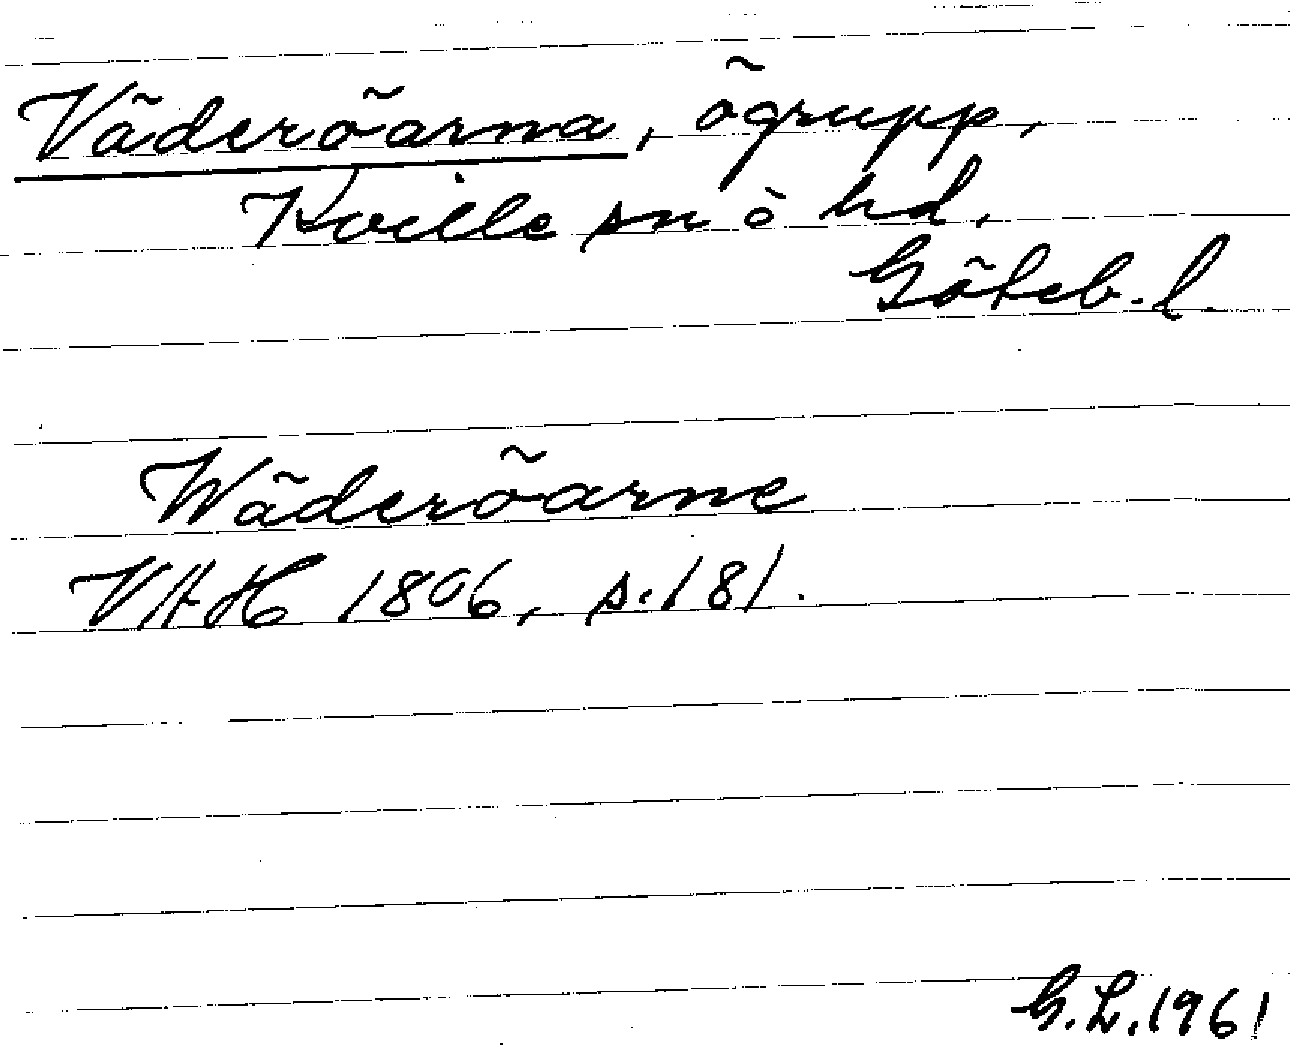 Väderöarna, ögrupp,
Kville sn o hd,
Göteb. l.
Wäderöarne
VAH 1806, s. 181.
G. L. 1961